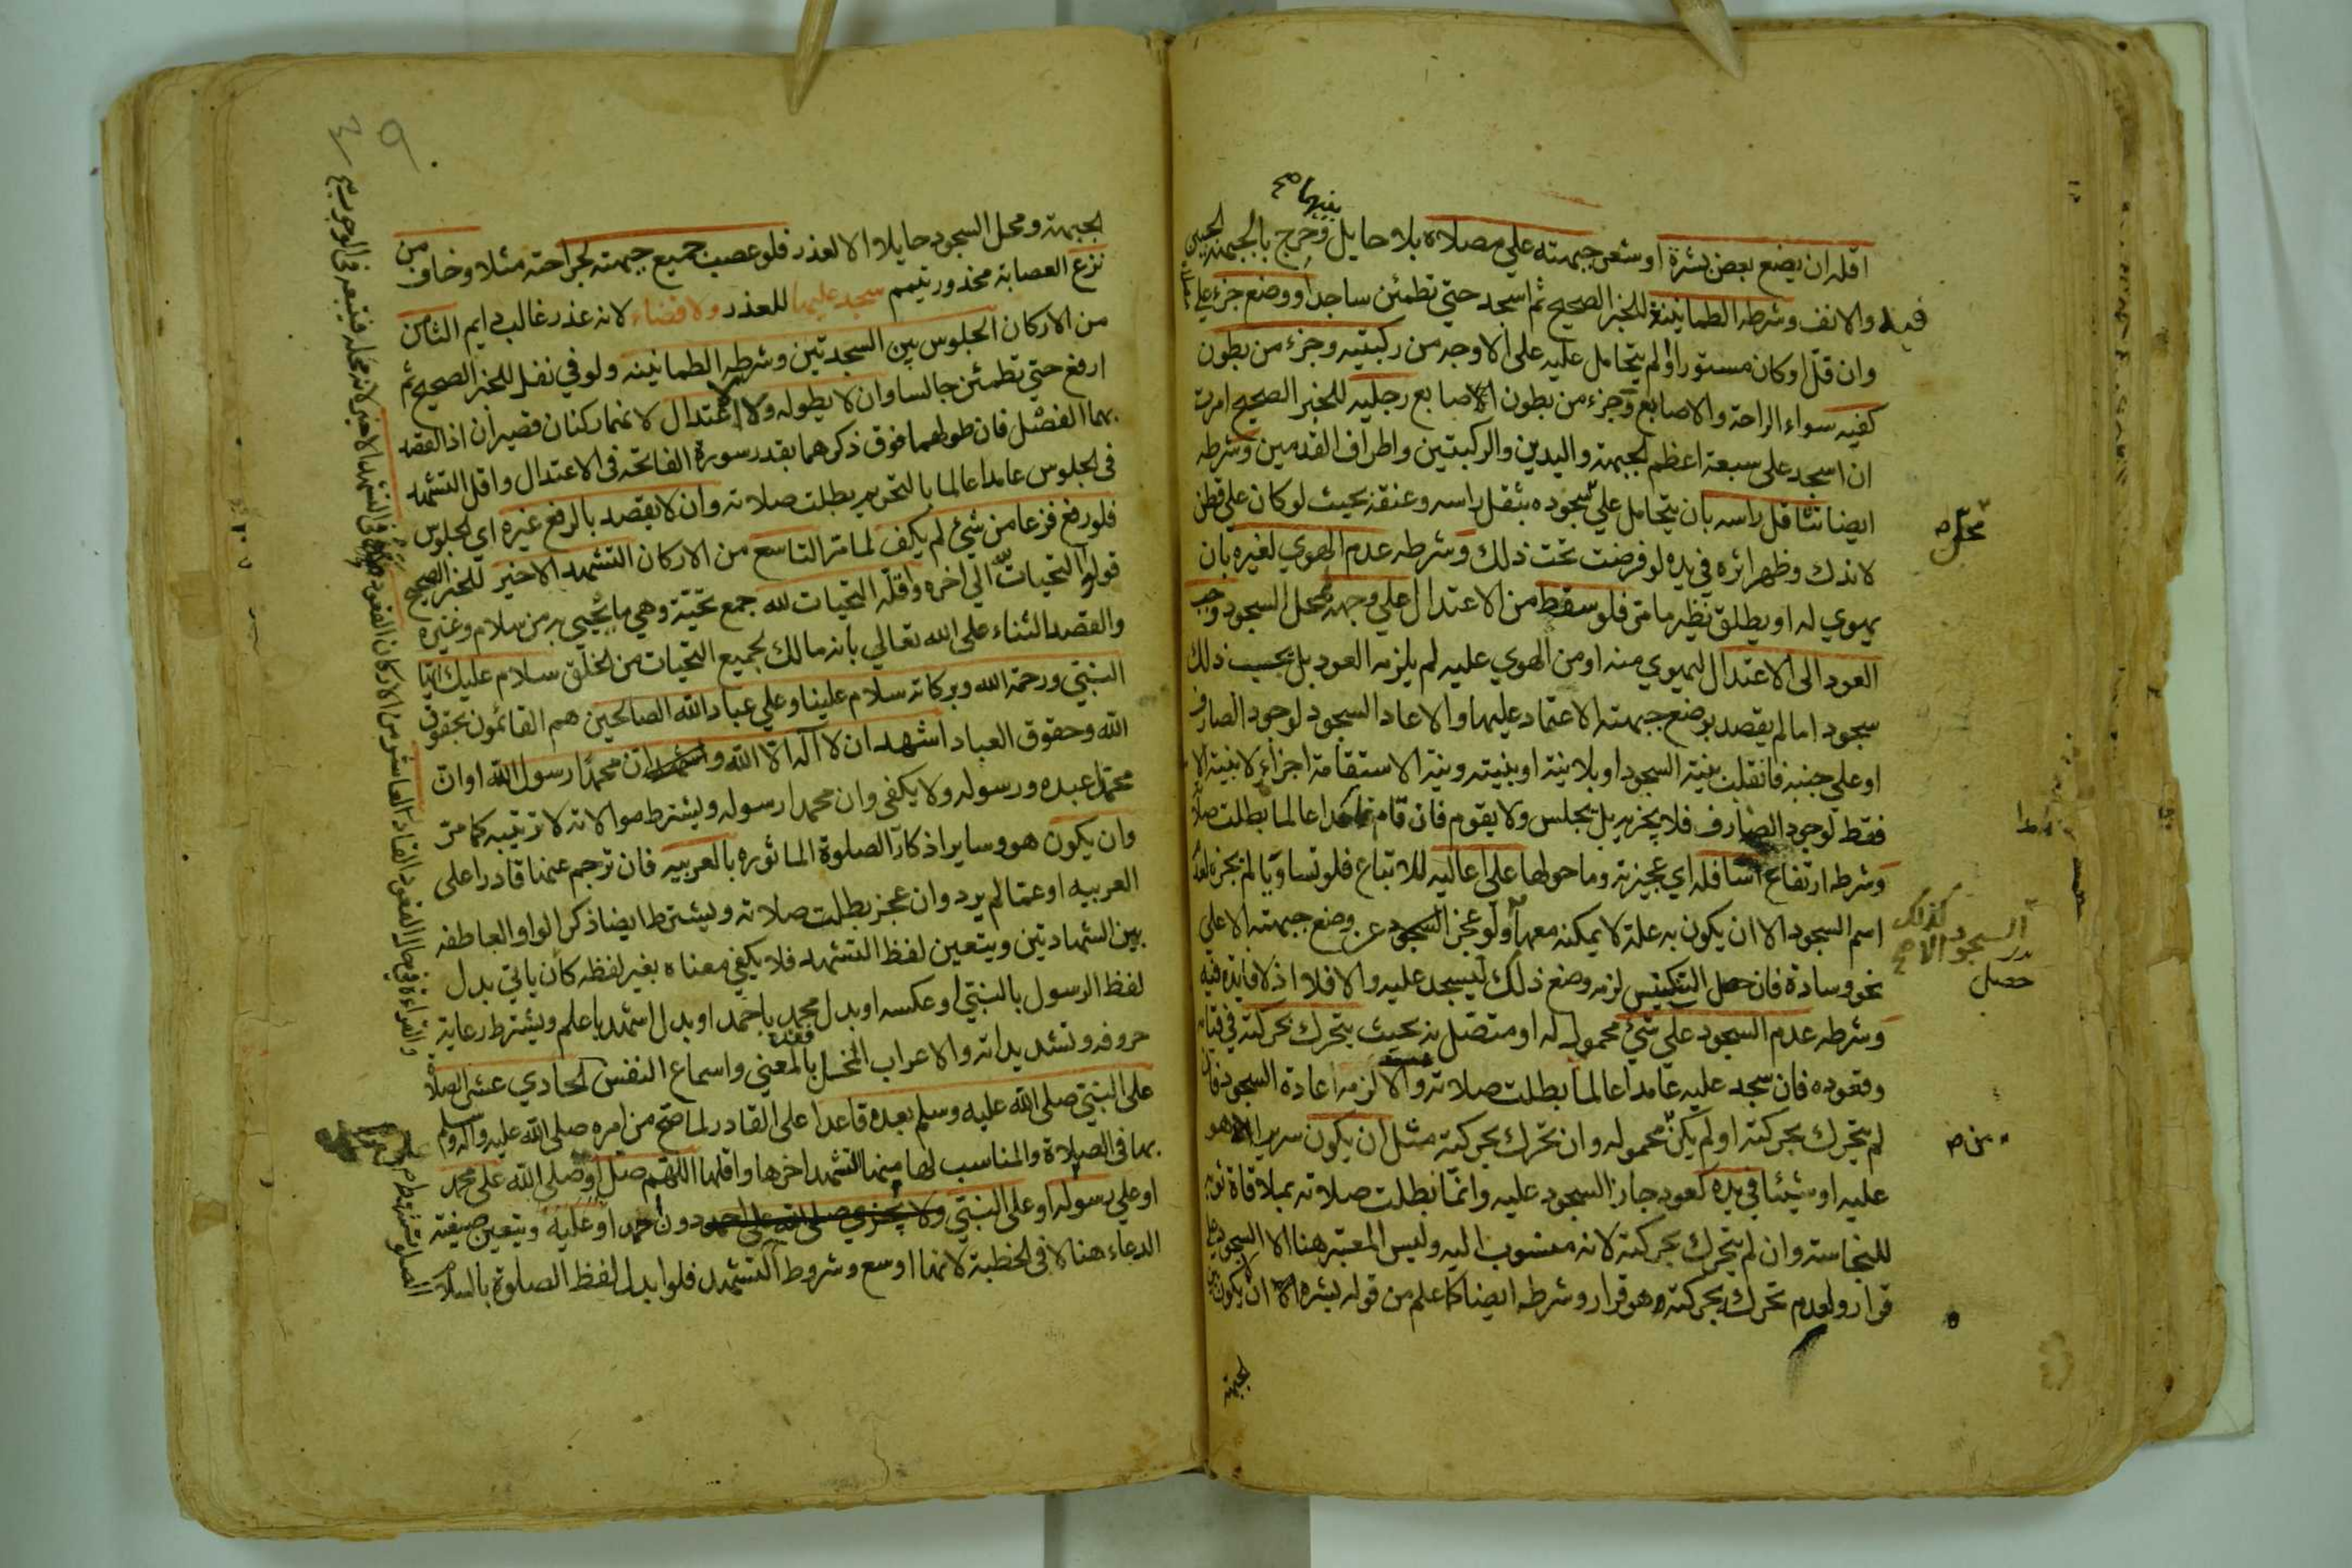 اقله ان يضع بعض بشرة او شعر جبهته علي مصلاه بلا حايل وخرج بالجبهة الجبين
والانف وشرطه الطمانينة للخبر الصحيح ثم اسجد حتي تطمئن ساجدا ووضع جزء علي
وان قل او كان مستورا او لم يتحامل عليه علي الاوجه من ركبتيه وجزء من بطون
كفيه سواء الراحة والاصابع وجزء من بطون الاصابع رجليه للخبر الصحيح امرت
ان اسجد على سبعة اعظم الجبهة واليدين والركبتين واطراف القدمين وشرطه
ايضا تثاقل راسه بان يتحامل علي سجوده بثقل راسه وعنقه بحيث لو كان علي قطن
لاندك وظهر اثره في يده لو فرضت تحت ذلك وشرطه عدم الهوي لغيره بان
يهوي له او يطلق نظير ما مر فلو سقط من الاعتدال علي وجهه لمحل السجود وجب
العود الى الاعتدال ليهوي منه او من الهوي عليه لم يلزمه العود بل يحسب ذلك
سجود اما لم يقصد بوضع جبهته الاعتماد عليها والا اعاد السجود لوجود الصارف
او على جنبه فانقلب بنية السجود او بلا نية او بنيته ونية الاستقامة اجزاء لا بنية الا
فقط لوجود الصارف فلا يجزيه بل يجلس ولا يقوم فان قام عامدا عالما بطلت صلا
وشرطه ارتفاع اسافله اي عجيزته وما حولها علي اعاليه للاتباع فلو تساويا لم يجزه لعد
اسم السجود الا ان يكون به علة لا يمكنه معها ولو عجز السجود عن وضع جبهته الا على
نحو وسادة فان حصل التنكيس لزمه وضع ذلك ليسجد عليه والا فلا اذ لا فايدة فيه
وشرطه عدم السجود على شئ محمول له او متصل به بحيث يتحرك بحركته في قيا
وقعوده فان سجد عليه عامدا عالما بطلت صلاته والا لزمه اعادة السجود فان
لم يتحرك بحركته او لم يكن محموله وان تحرك بحركته مثل ان يكون سريرا هو
عليه او شيئا في يده كعود جاز السجود عليه وانما بطلت صلاته بملاقاة ثوبه
للنجاسة وان لم يتحرك بحركته لانه منسوب اليه وليس المعتبر هنا الا السجود علي
قرار ولعدم تحرك بحركته وهو قرار وشرطه ايضا كما علم من قوله بشره ان لا يكون بين
الجبهة
محل ص
كذلك
السجود الا
حصل
من ص
الجبهة ومحل السجود حايلا الا لعذر فلو عصب جميع جبهته لجراحة مثلا وخاف من
نزع العصابة محذور تيمم سجد عليها للعذر ولا قضاء لانه عذر غالب دايم الثامن
من الاركان الجلوس بين السجدتين وشرطه الطمانينه ولو في نفل للخبر الصحيح ثم
ارفع حتي تطمئن جالسا وان لا يطوله ولا الاعتدال لانهما ركنان قصيران اذ القصد
بهما الفصل فان طولهما فوق ذكرهما بقدر سورة الفاتحة في الاعتدال واقل التشهد
في الجلوس عامدا عالما بالتحريم بطلت صلاته وان لا يقصد بالرفع غيره اي الجلوس
فلو رفع فزعا من شئ لم يكف لما مر التاسع من الاركان التشهد الاخير للخبر الصحيح
قولوا التحيات لله الي اخره واقله التحيات لله جمع تحية وهي ما يحيي به من سلام وغيره
والقصد الثناء على الله تعالي بانه مالك لجميع التحيات من الخلق سلام عليك ايها
النبي ورحمة الله وبركاته سلام علينا وعلي عباد الله الصالحين هم القائمون بحقوق
الله وحقوق العباد اشهد ان لا اله الا الله واشهد ان محمدا رسول الله او ان
محمدا عبده ورسوله ولا يكفي وان محمدا رسوله ويشترط موالاته لا ترتيبه كما مر
وان يكون هو وساير اذكار الصلوة الماثوره بالعربيه فان ترجم عنها قادرا على
العربيه او عما لم يرد وان عجز بطلت صلاته ويشترط ايضا ذكر الواو العاطفه
بين الشهادتين ويتعين لفظ التشهد فلا يكفي معناه بغير لفظه كأن ياتي بدل
لفظ الرسول بالنبي او عكسه او بدل محمد باحمد او بدل اشهد باعلم ويشترط رعاية
حروفه وتشديداته والاعراب المخل بالمعني واسماع النفس الحادي عشر الصلاة
على النبي صلى الله عليه وسلم بعده قاعدا على القادر لما صح من امره صلى الله عليه واله وسلم
بها في الصلاة والمناسب لها منها التشهد اخرها واقلها اللهم صل او صلي الله على محمد
او علي رسوله او على النبي ولا يجزي صلى الله على احمد دون احمد او عليه ويتعين صيغة
الدعاء هنا لا في الخطبة لانها اوسع وشروط التشهد فلو ابدل لفظ الصلوة بالسلام